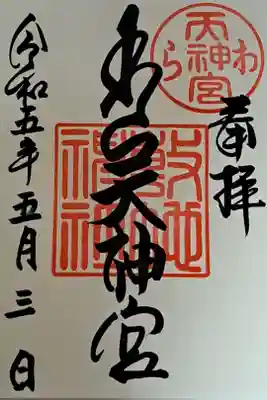 奉拝
わら天神宮
わら天神宮
敷地神社
令和五年五月三日